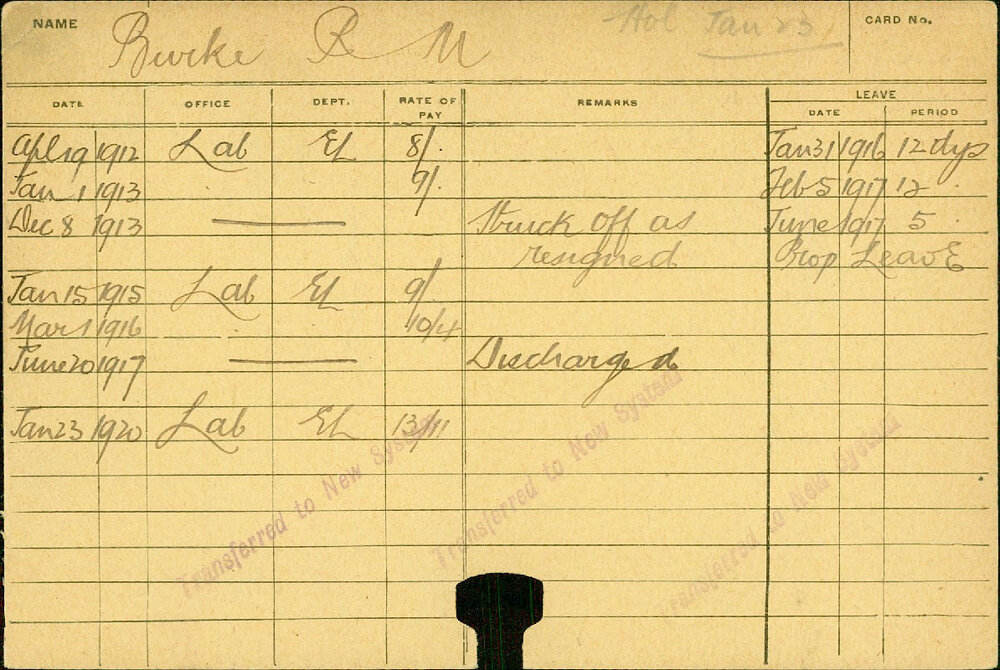 NAME Burke R M Hol Jan 23 CARD No.
DATE OFFICE DEPT. RATE OF PAY REMARKS LEAVE
DATE PERIOD
Apl 19 1912 Lab EL 8/. Jan 31 1916 12 dys
Jan 1 1913 9/. Feb 5 1917 12 .
Dec 8 1913 —— Struck off as June 1917 5 .
resigned Prop Leave
Jan 15 1915 Lab EL 9/
Mar 1 1916 10/4
June 20 1917 —— Discharged
Jan 23 1920 Lab EL 13/11
Transferred to New System
Transferred to New System
Transferred to New System